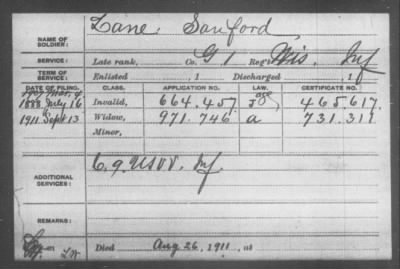 NAME OF SOLDIER: Lane, Sanford
SERVICE: Late rank, Co. G 1 Reg't Wis. Inf
TERM OF SERVICE: Enlisted , 1 Discharged , 1
DATE OF FILING. CLASS. APPLICATION NO. LAW. CERTIFICATE NO.
1907 Mar. 4 age
1888 July 16 Invalid, 664.457 J 465.617.
1911 Sept 13 Widow, 971.746 a 731.311
Minor,
ADDITIONAL SERVICES: C. 9. USVV. Inf.
REMARKS:
Died Aug 26, 1911, at